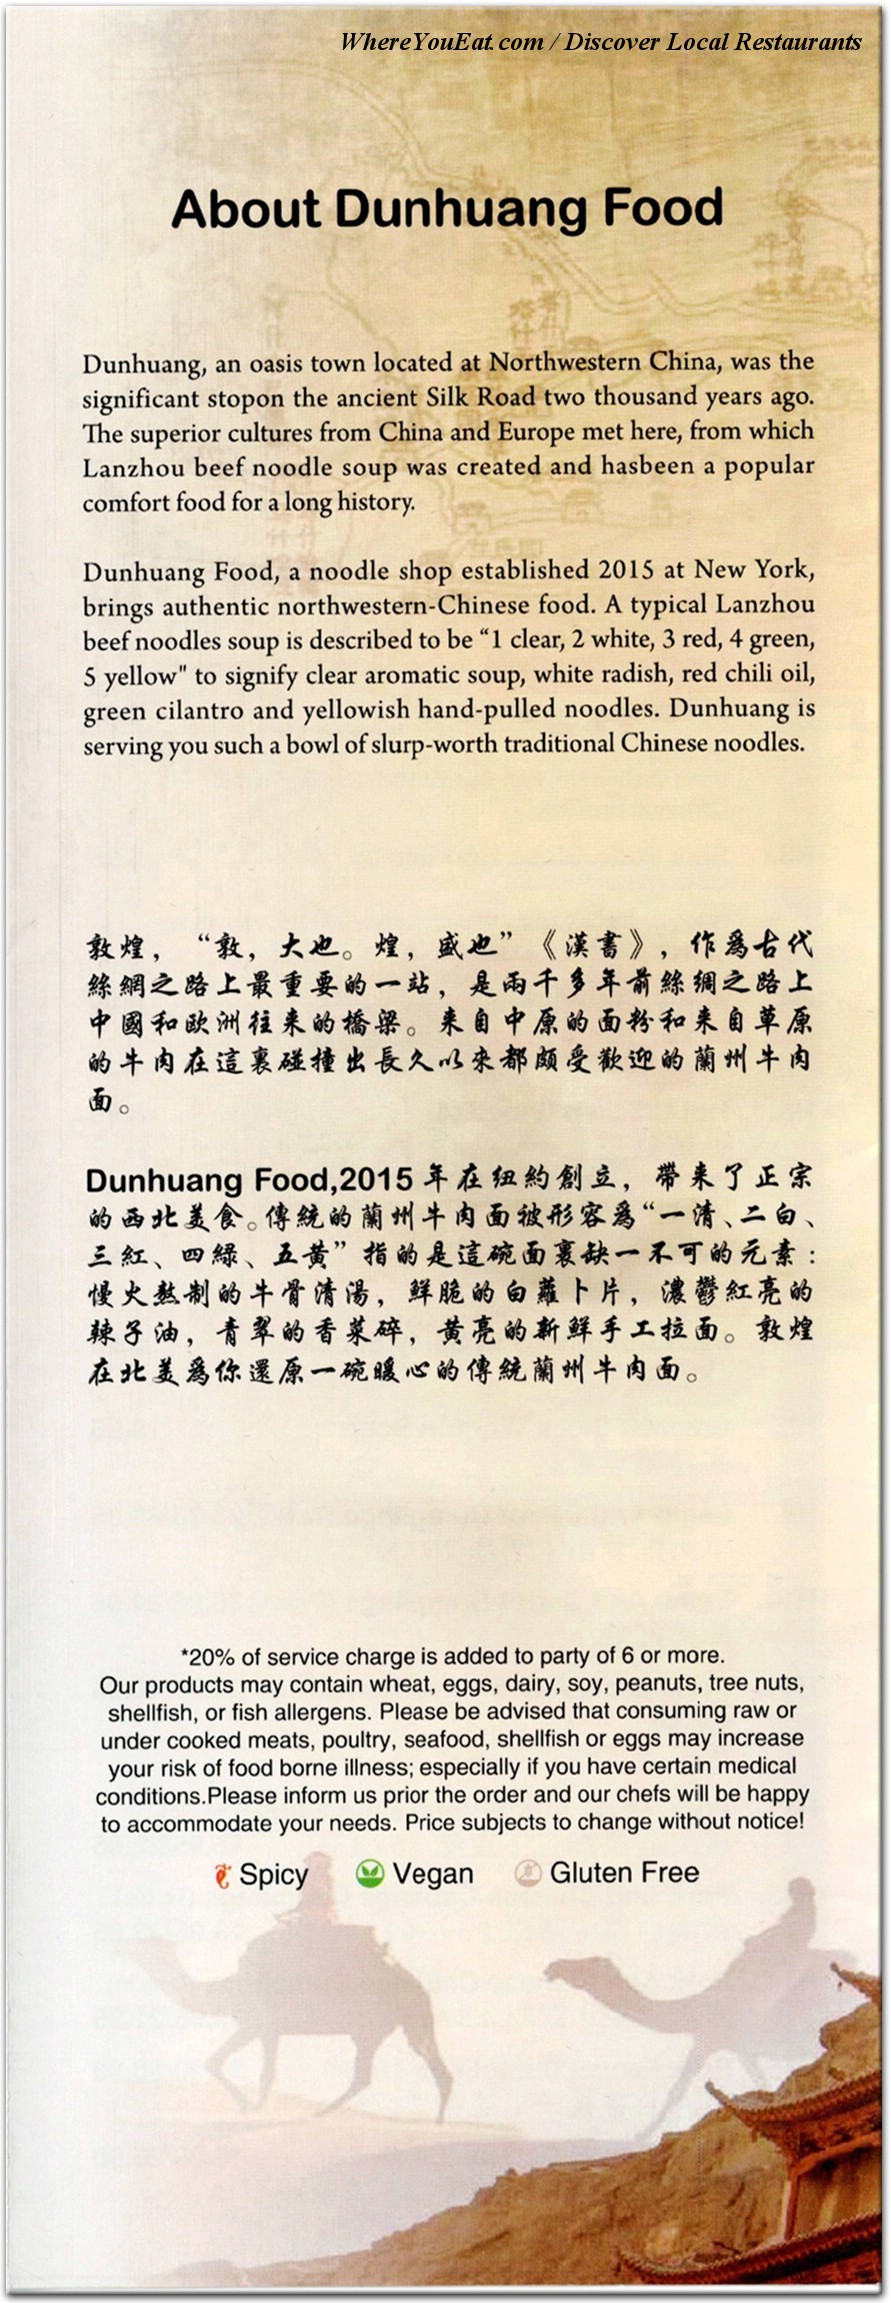 WhereYouEat.com / Discover Local Restaurants
About Dunhuang Food
Dunhuang, an oasis town located at Northwestern China, was the
significant stopon the ancient Silk Road two thousand years ago.
The superior cultures from China and Europe met here, from which
Lanzhou beef noodle soup was created and hasbeen a popular
comfort food for a long history.
Dunhuang Food, a noodle shop established 2015 at New York,
brings authentic northwestern-Chinese food. A typical Lanzhou
beef noodles soup is described to be “1 clear, 2 white, 3 red, 4 green,
5 yellow" to signify clear aromatic soup, white radish, red chili oil,
green cilantro and yellowish hand-pulled noodles. Dunhuang is
serving you such a bowl of slurp-worth traditional Chinese noodles.
敦煌，“敦，大也。煌，盛也”《漢書》，作爲古代
絲網之路上最重要的一站，是兩千多年前絲綢之路上
中國和歐洲往来的橋梁。来自中原的面粉和来自草原
的牛肉在這裏碰撞出長久以來都頗受歡迎的蘭州牛肉
面。
Dunhuang Food,2015年在纽約創立，帶来了正宗
的西北美食。傳統的蘭州牛肉面被形容爲“一清、二白、
三紅、四緑、五黄”指的是這碗面裏缺一不可的元素：
慢火熬制的牛骨清湯，鮮脆的白蘿卜片，濃鬱紅亮的
辣子油，青翠的香菜碎，黄亮的新鮮手工拉面。敦煌
在北美爲你還原一碗暖心的傳統蘭州牛肉面。
*20% of service charge is added to party of 6 or more.
Our products may contain wheat, eggs, dairy, soy, peanuts, tree nuts,
shellfish, or fish allergens. Please be advised that consuming raw or
under cooked meats, poultry, seafood, shellfish or eggs may increase
your risk of food borne illness; especially if you have certain medical
conditions.Please inform us prior the order and our chefs will be happy
to accommodate your needs. Price subjects to change without notice!
Spicy Vegan Gluten Free